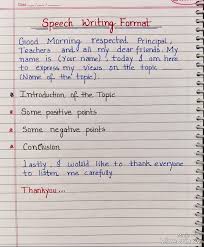 Speech Writing Format
Good Morning respected Principal,
Teachers and all my dear friends. My
name is (Your name), today I am here
to express my views on the topic
(Name of the topic).
Introduction of the Topic
Some positive points
Some negative points
Conclusion
Lastly, I would like to thank everyone
to listen me carefully
Thankyou...